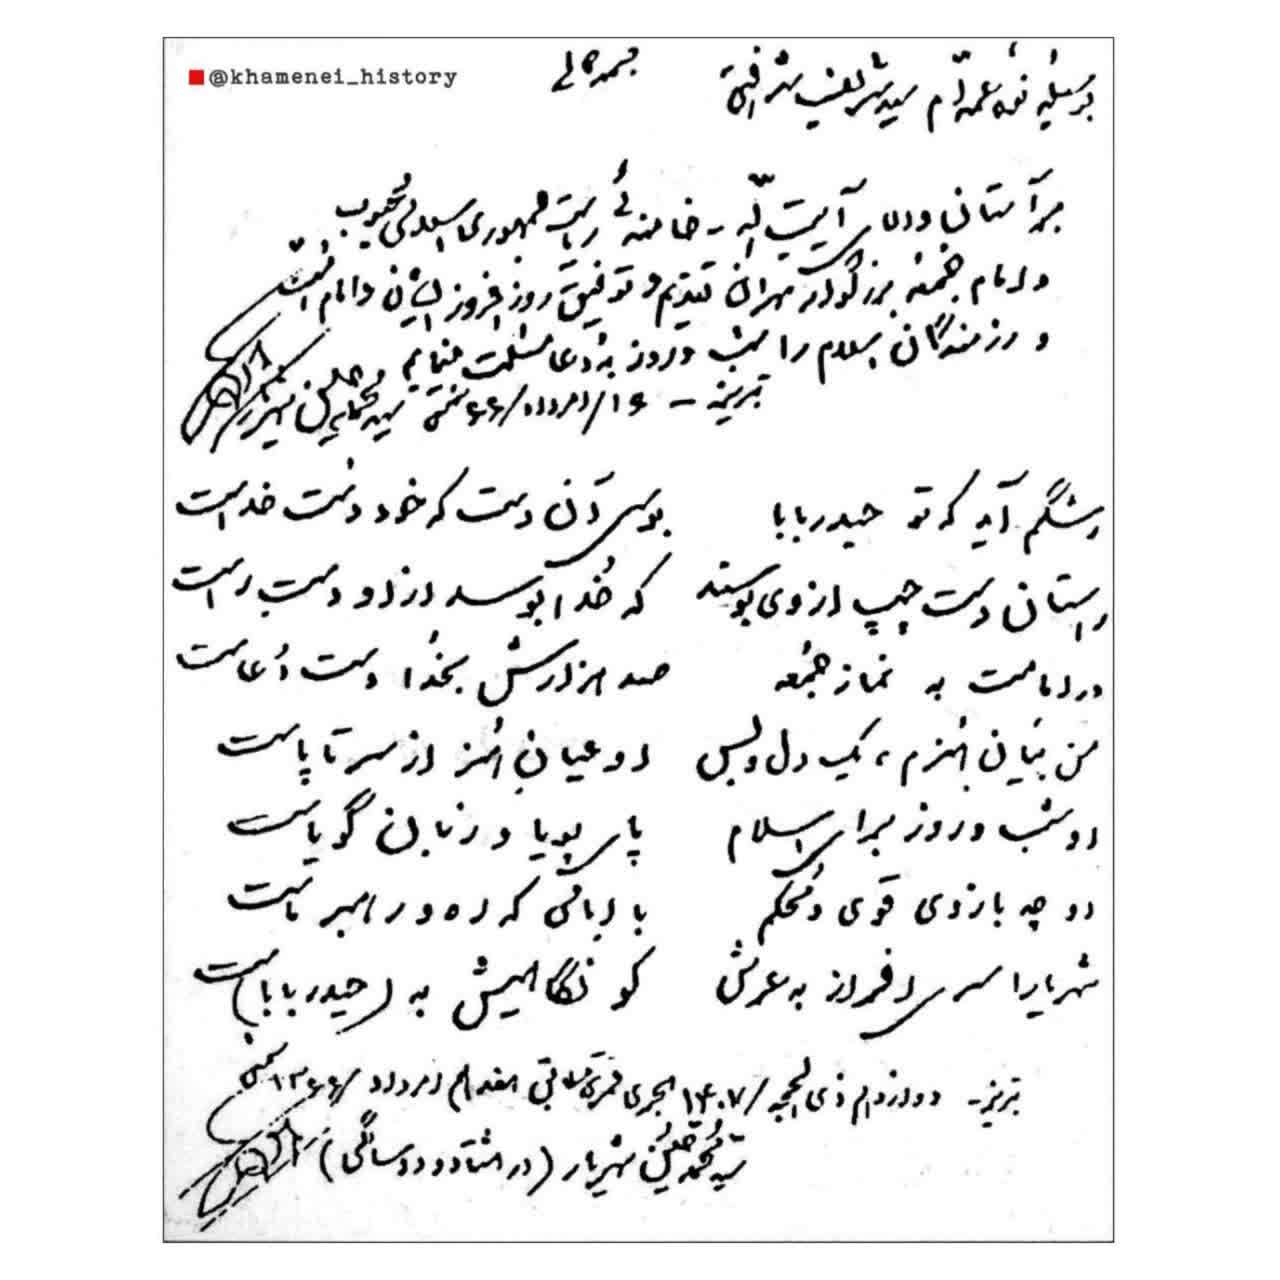 @khamenei_history
بسمه تعالی
بوسیله نوه عمه ام سید شریف شرافتی
بر آستان والای آیت الله - خامنه ئی ریاست جمهوری اسلامی محبوب
و امام جمعه بزرگوار تهران تقدیم و توفیق روز افزون ایشان و امام امت
و رزمندگان اسلام را شب و روز به دعا مسئلت مینمایم
تبریز - ۱۶/امرداد/۶۶ شمسی سید محمدحسین شهریار
رشگم آید که تو حیدربابا بوسی آن دست که خود دست خداست
راستان دست چپ از وی بوسند که خدا بوسد از او دست راست
در امامت به نماز جمعه صد هزارش بخدا دست دعاست
من بیان هنرم، یک دل و بس او عیان هنر از سر تا پاست
او شب و روز برای اسلام پای پویا و زبان گویاست
او چه بازوی قوی و محکم با امامی که ره و رهبر ماست
شهریارا سری افراز به عرش کو نگاهیش به (حیدربابا) ست
تبریز - دوازدهم ذی الحجه / ۱۴۰۷ هجری قمری مطابق هفدهم امرداد / ۱۳۶۶ شمسی
سید محمدحسین شهریار (در هشتاد و دو سالگی)